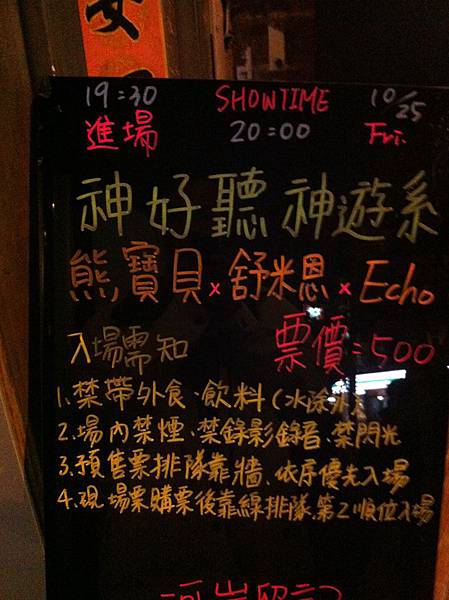 19:30 SHOWTIME 10/25
進場 20:00 Fri.
神好聽 神遊系
熊寶貝 x 舒米恩 x Echo
入場需知 票價=500
1.禁帶外食、飲料(水除外)
2.場內禁煙、禁錄影錄音、禁閃光
3.預售票排隊靠牆、依序優先入場
4.現場票購票後靠線排隊、第2順位入場
河岸留言